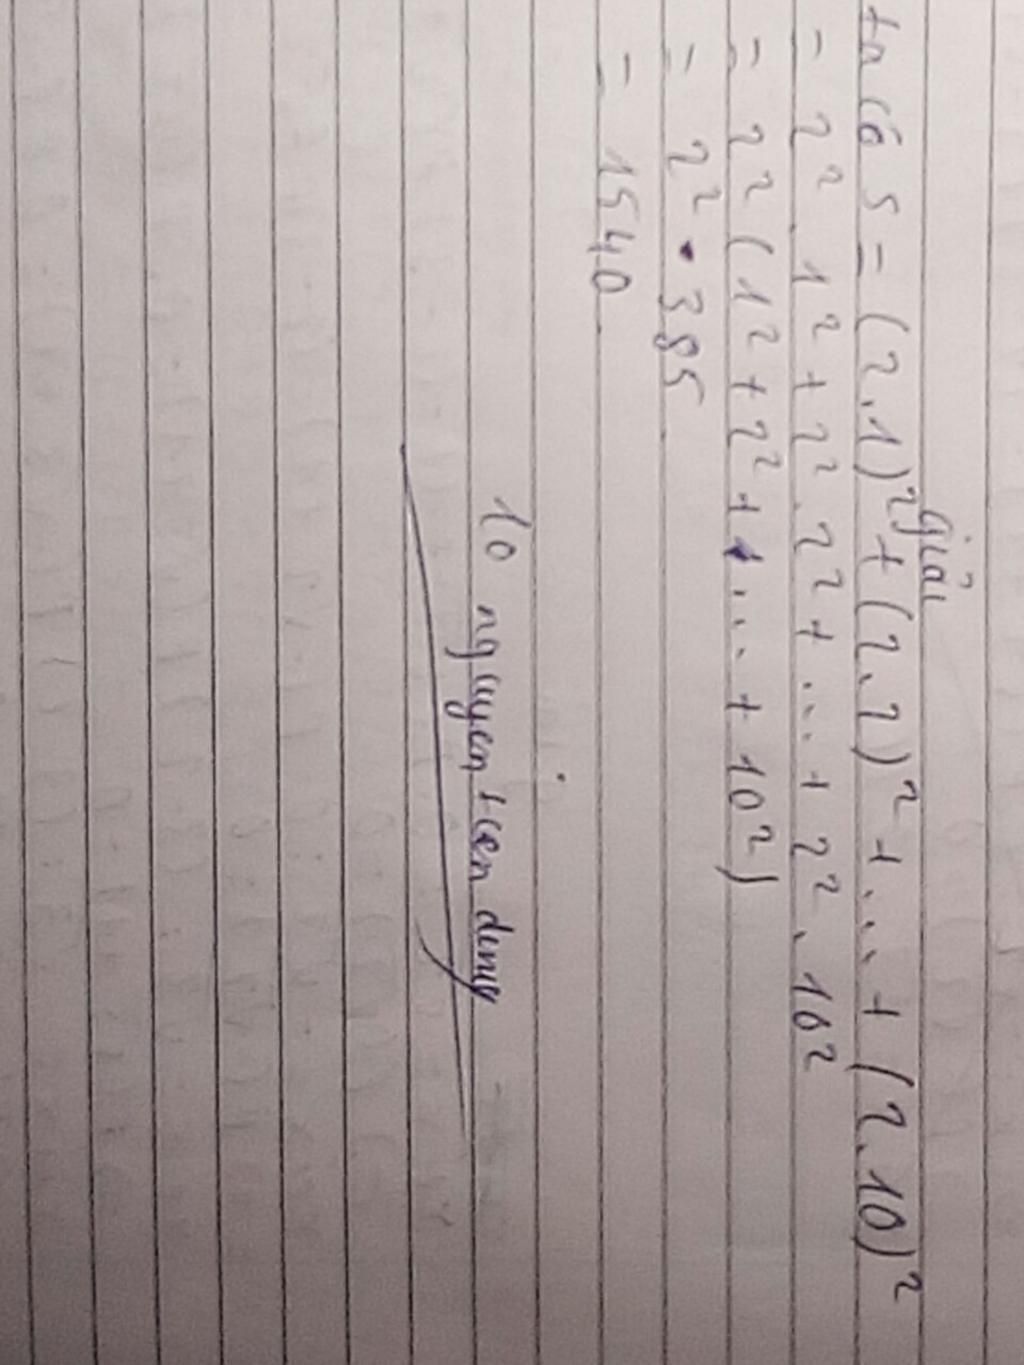 Giải
ta có S = (2.1)² + (2.2)² + .... + (2.10)²
= 2².1² + 2².2² + .... + 2².10²
= 2² (1² + 2² + .... + 10²)
= 2² . 385
= 1540
10 nguyen tien dung